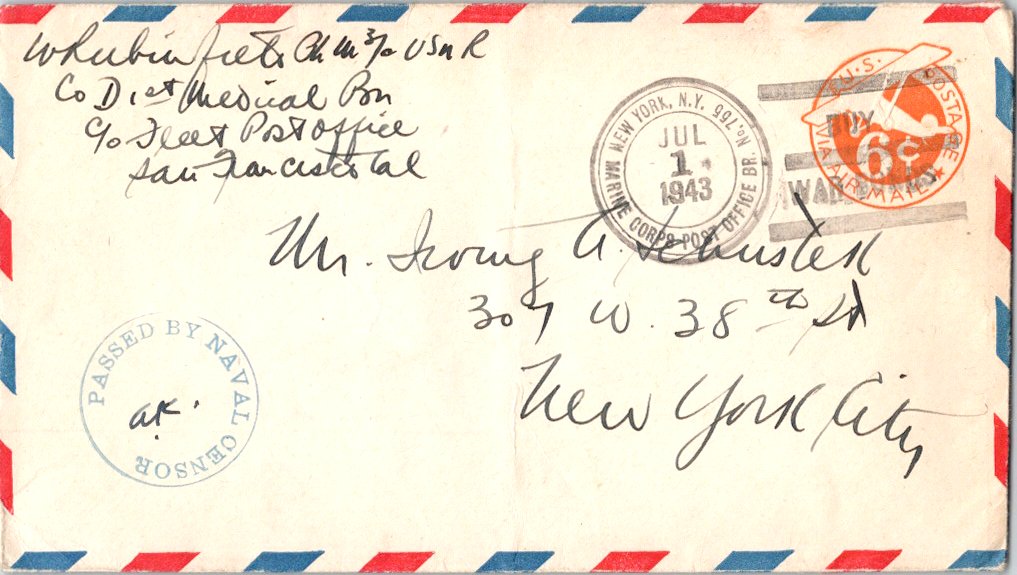 W Rubin PhM 3/c USNR
Co D 1st Medical Bn
c/o Fleet Post Office
San Francisco Cal
NEW YORK, N.Y. No. 765
MARINE CORPS POST OFFICE BR.
JUL
1
1943
BUY
WAR
U.S. POSTAGE
6¢
VIA AIR MAIL
Mr. Irving A. Schuster
307 W. 38th St
New York City
PASSED BY NAVAL CENSOR